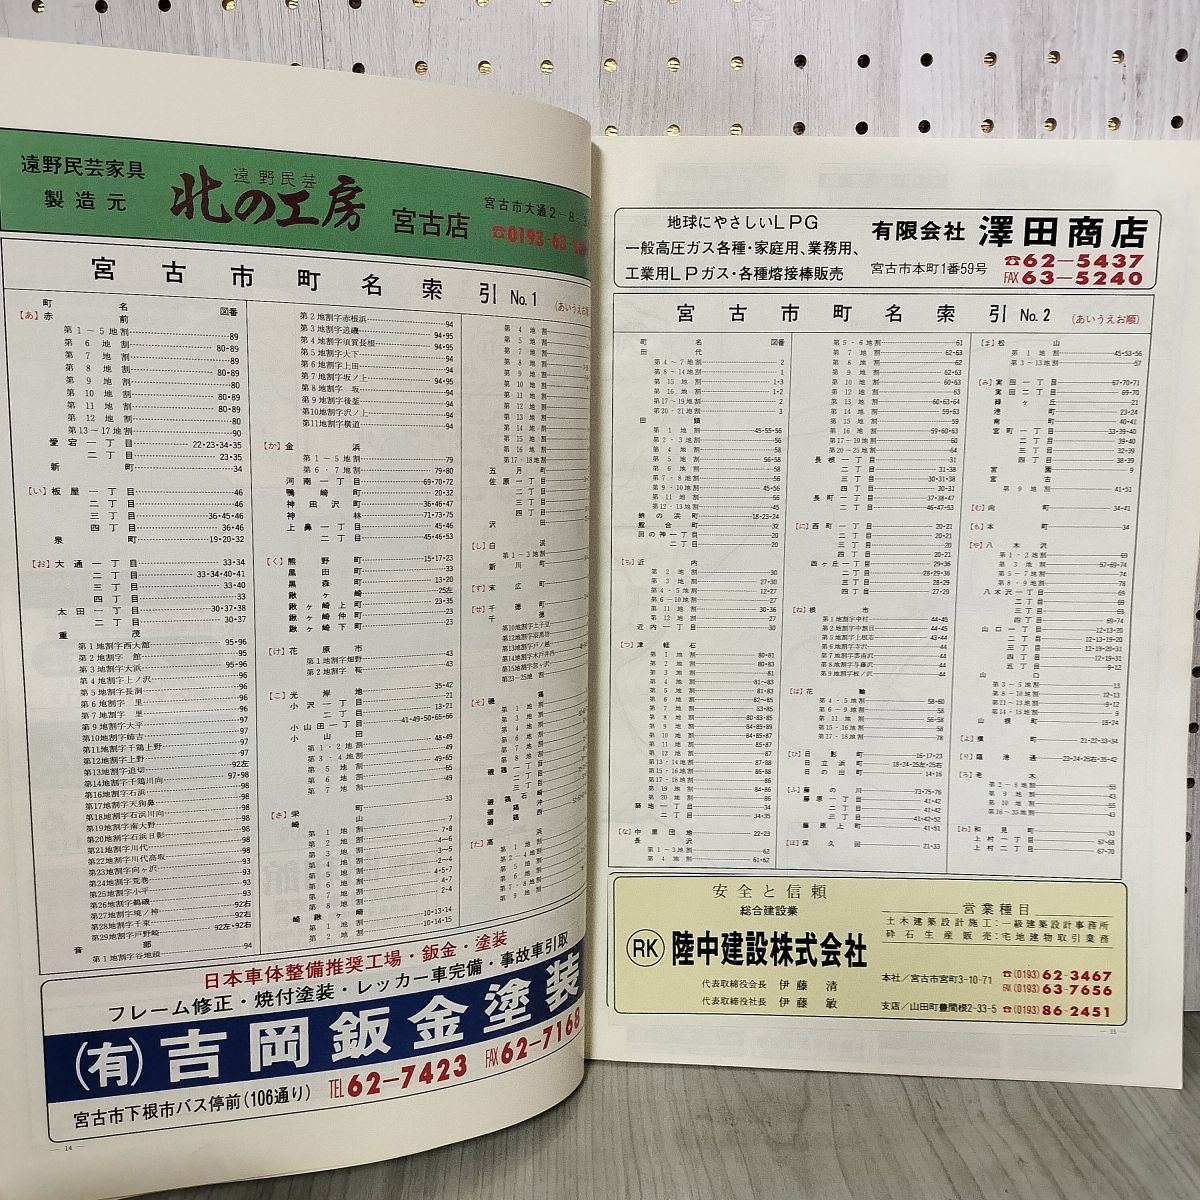 遠野民芸家具
製造元
遠野民芸
北の工房
宮古店
宮古市大通2-8-3
☎0193-63-
宮古市町名索引 No.1
(あいうえお順
町名 図番
【あ】赤前
第1~5地割 89
第6地割 80・89
第7地割 89
第8地割 80・89
第9地割 80
第10地割 80・89
第11地割 80・89
第12地割 80
第13~17地割 90
愛宕一丁目 22・23・34・35
二丁目 23・35
新町 34
【い】板屋一丁目 46
二丁目 46
三丁目 36・45・46
四丁目 36・46
泉町 19・20・32
【お】大通一丁目 33・34
二丁目 33・34・40・41
三丁目 33・40
四丁目 33
太田一丁目 30・37・38
二丁目 30・37
重茂
第1地割字西大館 95・96
第2地割字館 95
第3地割字大浜 95・96
第4地割字上ノ沢 96
第5地割字長洞 96
第6地割字里 96
第7地割字里 96
第9地割字大平 97
第10地割字姉吉 97
第11地割字千鶏上野 97
第12地割字上野 97
第13地割字追切 92左
第14地割字千鶏川向 97・98
第16地割字石浜 93
第17地割字天狗鼻 93
第18地割字石浜川向 93
第19地割字南大野 93
第20地割字石浜日影 93
第21地割字川代 93
第22地割字川代高坂 93
第23地割字向ヶ沢 93
第24地割字荒巻 93
第25地割字小平 93
第26地割字鵜磯 92右
第27地割字境ノ神 92右
第28地割字千束 92左・92右
第29地割字戸野崎
音部 94
第1地割字谷地頭
第2地割字赤根浜 94
第3地割字追磯 94・95
第4地割字須賀長根 94・95
第5地割字大下 94
第6地割字上田 94
第7地割字坂ノ上 94・95
第8地割字坂 94
第9地割字後釜 94
第10地割字沢ノ上 94
第11地割字横道 94
【か】金浜
第1~5地割 79
第6・7地割 79・80
河南一丁目 69・70・72
鴨崎町 20・32
神田沢町 36・46・47
神林 71・73・75
上鼻一丁目 45・46
二丁目 45・46・53
【く】熊野町 15・17・23
黒田町 33
黒森町 13・20
鍬ヶ崎 25左
鍬ヶ崎上町 23・35
鍬ヶ崎仲町 23
鍬ヶ崎下町 23
【け】花原市
第1地割字畑野 43
第2地割字 43
【こ】光岸地 35・42
小沢一丁目 21
二丁目 13・21
小山田一丁目 41・49・50・65・66
小山田
第1・2地割 48・49
第3・4地割 49・65
第5地割 65
第6地割 49
第7地割 49
【さ】栄町 33
崎山
第1地割 7
第2地割 7・8
第3地割 4~6
第4地割 3~5
第5地割 4・5・7
第6地割 4・7
第7地割 2・4
第8地割
崎鍬ヶ崎 10・13・14
第1地割 10・14・15
第2地割
第4地割
第5地割
第7地割
第8地割
第9地割
五月町
佐原一丁目
二丁目
三丁目
四丁目
沢田
【し】白浜
第1~3地割
新川町
【す】末広町
【せ】千徳町
千徳
【そ】磯鶏
【た】高浜
日本車体整備推奨工場・鈑金・塗装
フレーム修正・焼付塗装・レッカー車完備・事故車引取
(有)吉岡鈑金塗装
宮古市下根市バス停前(106通り) TEL 62-7423 FAX 62-7168
— 14 —
地球にやさしいLPG
一般高圧ガス各種・家庭用、業務用、
工業用LPガス・各種熔接棒販売
有限会社 澤田商店
宮古市本町1番59号
☎62-5437
FAX 63-5240
宮古市町名索引 No.2
(あいうえお順)
町名 図番
田代
第4~7地割 2
第8~14地割 1
第15地割 1・3
第16地割 1・2
第17~19地割 2
第20・21地割 3
田鎖
第1地割 45・55・56
第2・3地割 56
第4地割 58
第5地割 56・58
第6地割 58
第7・8地割 56
第9・10地割 45・56
第11地割 56
第12・13地割 45
蛸の浜町 18・23・24
舘合町 32
田の神一丁目 20
二丁目 20
【ち】近内
第2地割 30
第3地割 27・30
第4・5地割 12・27
第6~10地割 27
第11地割 30・36
第12地割 27
近内一丁目 30
【つ】津軽石
第1地割 80・81
第2地割 81
第3地割 81
第4地割 81~83
第5地割 81・83
第6地割 82~85
第7地割 85・87
第8地割 80・83・85
第9地割 84・85・87
第10地割 84~87
第11地割 85・87
第12地割 87
第13・14地割 87・88
第15・16地割 86~88
第17・18地割 86
第19地割 84・86
第20地割 86
築地一丁目 34
二丁目 34・35
【な】中里団地 22・23
長沢
第1~3地割 62
第4地割 61・62
第5・6地割 61
第7地割 62・63
第8地割 62
第9地割 62・63
第10地割 60・63
第12地割 63
第13地割 60・63・64
第14地割 59・63
第15地割 59
第16地割 59・60・63
第17~19地割 60
第20~25地割 64
長根一丁目 31
二丁目 31・38
三丁目 30・31・38
四丁目 30・31
長町一丁目 37・38・47
二丁目 46・47・53
【に】西町一丁目 20・21
二丁目 20・21
三丁目 20
四丁目 20・21
西ヶ丘一丁目 29・36
二丁目 28・29・36
三丁目 28・29
四丁目 27・29
【ね】根市
第1地割字中村 44・45
第2地割字中割目 44・45
第3地割字上根志 43・44
第6地割字寺沢 44
第7地割字雲南沢 44
第8地割字与藤沢 44
第9地割字板ノ沢 44
【は】花輪
第4・5地割 58・60
第6~9地割 58
第11地割 56・58
第15・16地割 58
第17・18地割 58
【ひ】日影町 16・17・23
日立浜町 18・24・25左・25右
日の出町 14・16
【ふ】藤の川 73・75・76
藤原一丁目 41・42
二丁目 41・42
三丁目 41・42・52
藤原上町 41・51
【ほ】保久田 21・33
【ま】松山
第1地割 45・53・56
第3~13地割 57
【み】実田一丁目 67・70・71
実田二丁目 69・70
緑ヶ丘 21
港町 23・24
南町 40・41
宮町一丁目 33・39・40
二丁目 39・40
三丁目 32・39
四丁目 38・39
宮園 9
宮古
第9地割 41・51
【む】向町 34・41
【も】本町 34
【や】八木沢
第1・2地割 69
第3地割 57・69・74
第5~7地割 74
第8・9地割 78
八木沢一丁目 69
二丁目 69
三丁目 69
四丁目 69・74
山口一丁目 12・13・20
二丁目 12・13・19・20
三丁目 12・19・20・31
四丁目 12・19・31
五丁目 9・12
山口
第3~5地割 11
第8~10地割 12・13
第11~13地割 9
第14・15地割 13
山根町 18・24
【よ】横町 21・22・33・34
【り】臨港通 23・24・25右・35・42
【ろ】老木
第2~8地割 55
第9地割 43
第10地割 55
第16~35地割 43
【わ】和見町 33
上村一丁目 67・68
上村二丁目 67・70
安全と信頼
総合建設業
RK 陸中建設株式会社
代表取締役会長 伊藤清
代表取締役社長 伊藤敏
営業種目
土木建築設計施工:一級建築設計事務所
砕石生産販売:宅地建物取引業務
本社/宮古市宮町3-10-71 ☎(0193)62-3467
FAX(0193)63-7656
支店/山田町豊間根2-33-5 ☎(0193)86-2451
— 15 —